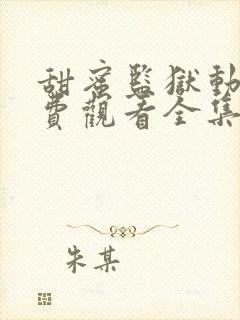 甜蜜監獄動
費觀看全集
朱某